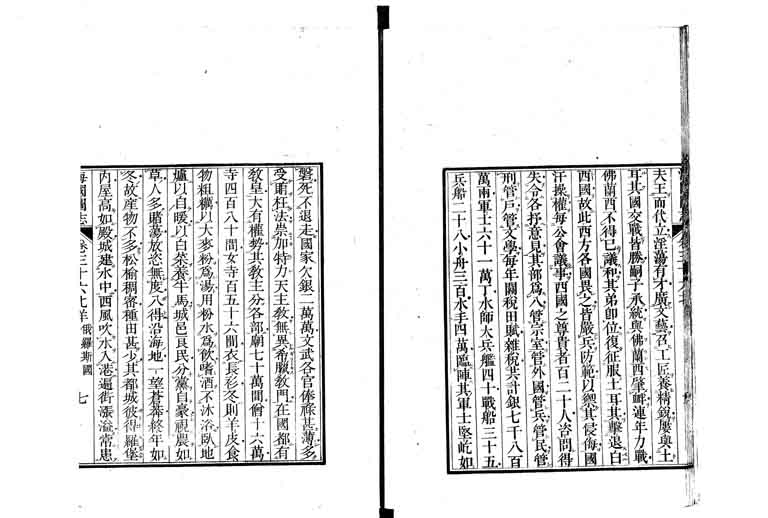 夫王而代立淫蕩有才廣文藝召工匠養精銳屢與土
耳其國交戰皆勝嗣子承統與佛蘭西肇衅連年力戰
佛蘭西不得已議和其弟即位復征服土耳其擊退白
西國故此西方各國畏之皆嚴兵防範以禦其侵侮國
汗操權每公會議事西國之尊貴者百二十人咨問得
失令各抒意見其部為八管宗室管外國管兵管民管
刑管戶管文學每年關稅田賦雜稅共計銀七千八百
萬兩軍士六十一萬丁水師大兵艦四十戰船三十五
兵船二十八小舟三百水手四萬臨陣其軍士堅屹如
磐死不退走國家欠銀二萬萬文武各官俸祿甚薄多
受賄枉法崇加特力天主教無異希臘教門在國都有
教皇大有權勢其教主分各部廟七十萬間僧十六萬
寺四百八十間女寺百五十六間衣長衫冬則羊皮食
物粗糲以大麥粉為湯用粉水為飲嗜酒不沐浴臥地
爐以自暖以白菜養牛馬城邑良民分黨自豪視農如
草人多賭蕩放恣無度人得沿海地一望蒼莽終年如
冬故産物不多松榆稠密種田甚少其都城彼得羅堡
内屋高如殿城建水中西風吹水入港遍街漲溢常患
海國圖志 卷三十六 北洋 俄羅斯國 七